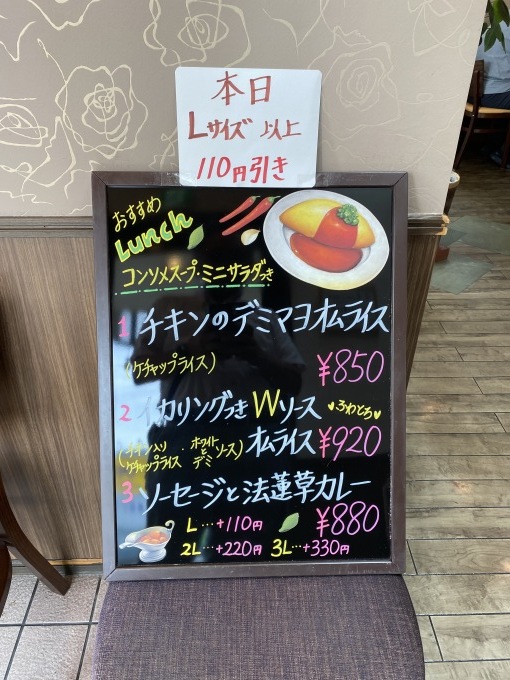 本日
Lサイズ 以上
110円引き
おすすめ
Lunch
コンソメスープ・ミニサラダつき
1 チキンのデミマヨオムライス
(ケチャップライス) ¥850
2 イカリングつきWソース ♥ふわとろ♥
(チキン入りケチャップライス・ホワイトとデミソース) オムライス ¥920
3 ソーセージと法蓮草カレー
¥880
L…+110円
2L…+220円 3L…+330円